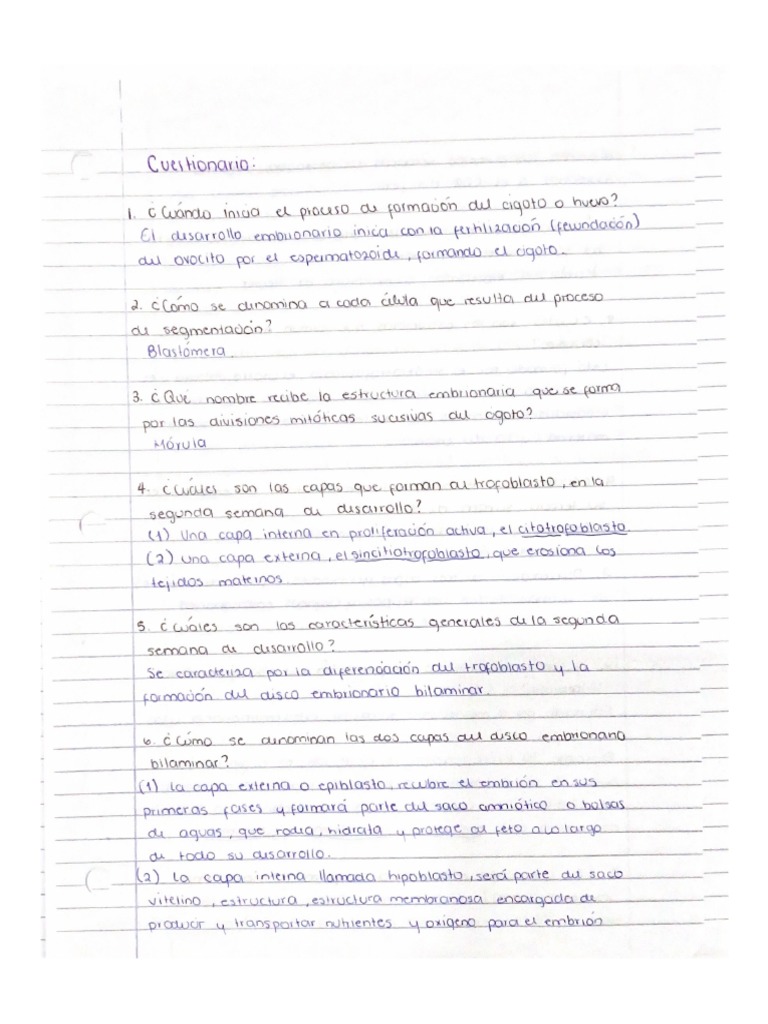 Cuestionario:
1. ¿Cuándo inicia el proceso de formación del cigoto o huevo?
El desarrollo embrionario inicia con la fertilización (fecundación)
del ovocito por el espermatozoide, formando el cigoto.
2. ¿Cómo se denomina a cada célula que resulta del proceso
de segmentación?
Blastómera.
3. ¿Qué nombre recibe la estructura embrionaria que se forma
por las divisiones mitóticas sucesivas del cigoto?
Mórula
4. ¿Cuáles son las capas que forman al trofoblasto, en la
segunda semana de desarrollo?
(1) Una capa interna en proliferación activa, el citotrofoblasto.
(2) Una capa externa, el sincitiotrofoblasto, que erosiona los
tejidos maternos.
5. ¿Cuáles son las características generales de la segunda
semana de desarrollo?
Se caracteriza por la diferenciación del trofoblasto y la
formación del disco embrionario bilaminar.
6. ¿Cómo se denominan las dos capas del disco embrionario
bilaminar?
(1) La capa externa o epiblasto, recubre el embrión en sus
primeras fases y formará parte del saco amniótico o bolsas
de aguas, que rodea, hidrata y protege al feto a lo largo
de todo su desarrollo.
(2) La capa interna llamada hipoblasto, será parte del saco
vitelino, estructura, estructura membranosa encargada de
producir y transportar nutrientes y oxígeno para el embrión